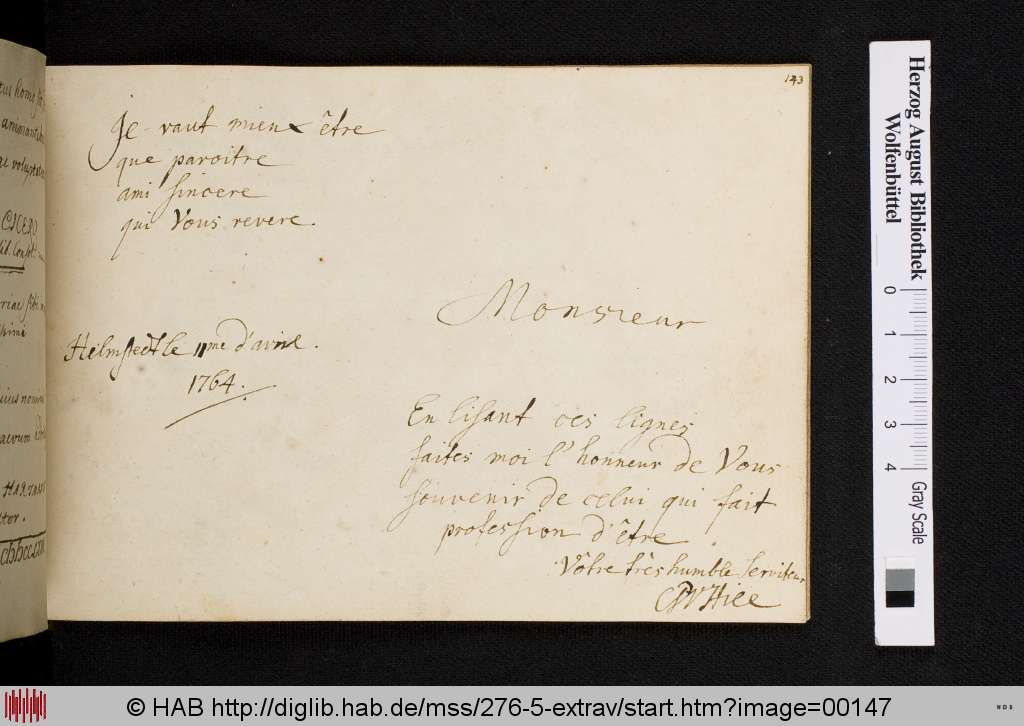 143
Je vaut mieux être
que paroitre
ami sincere
qui Vous revere.
Monsieur
Helmstedt le 11me d'avril.
1764.
En lisant ces lignes
faites moi l'honneur de Vous
souvenir de celui qui fait
profession d'être
Vôtre três humble serviteur
homo
voluptat
CICERO
Herzog August Bibliothek
Wolfenbüttel
0
1
2
3
4
Gray Scale
© HAB http://diglib.hab.de/mss/276-5-extrav/start.htm?image=00147
WDB